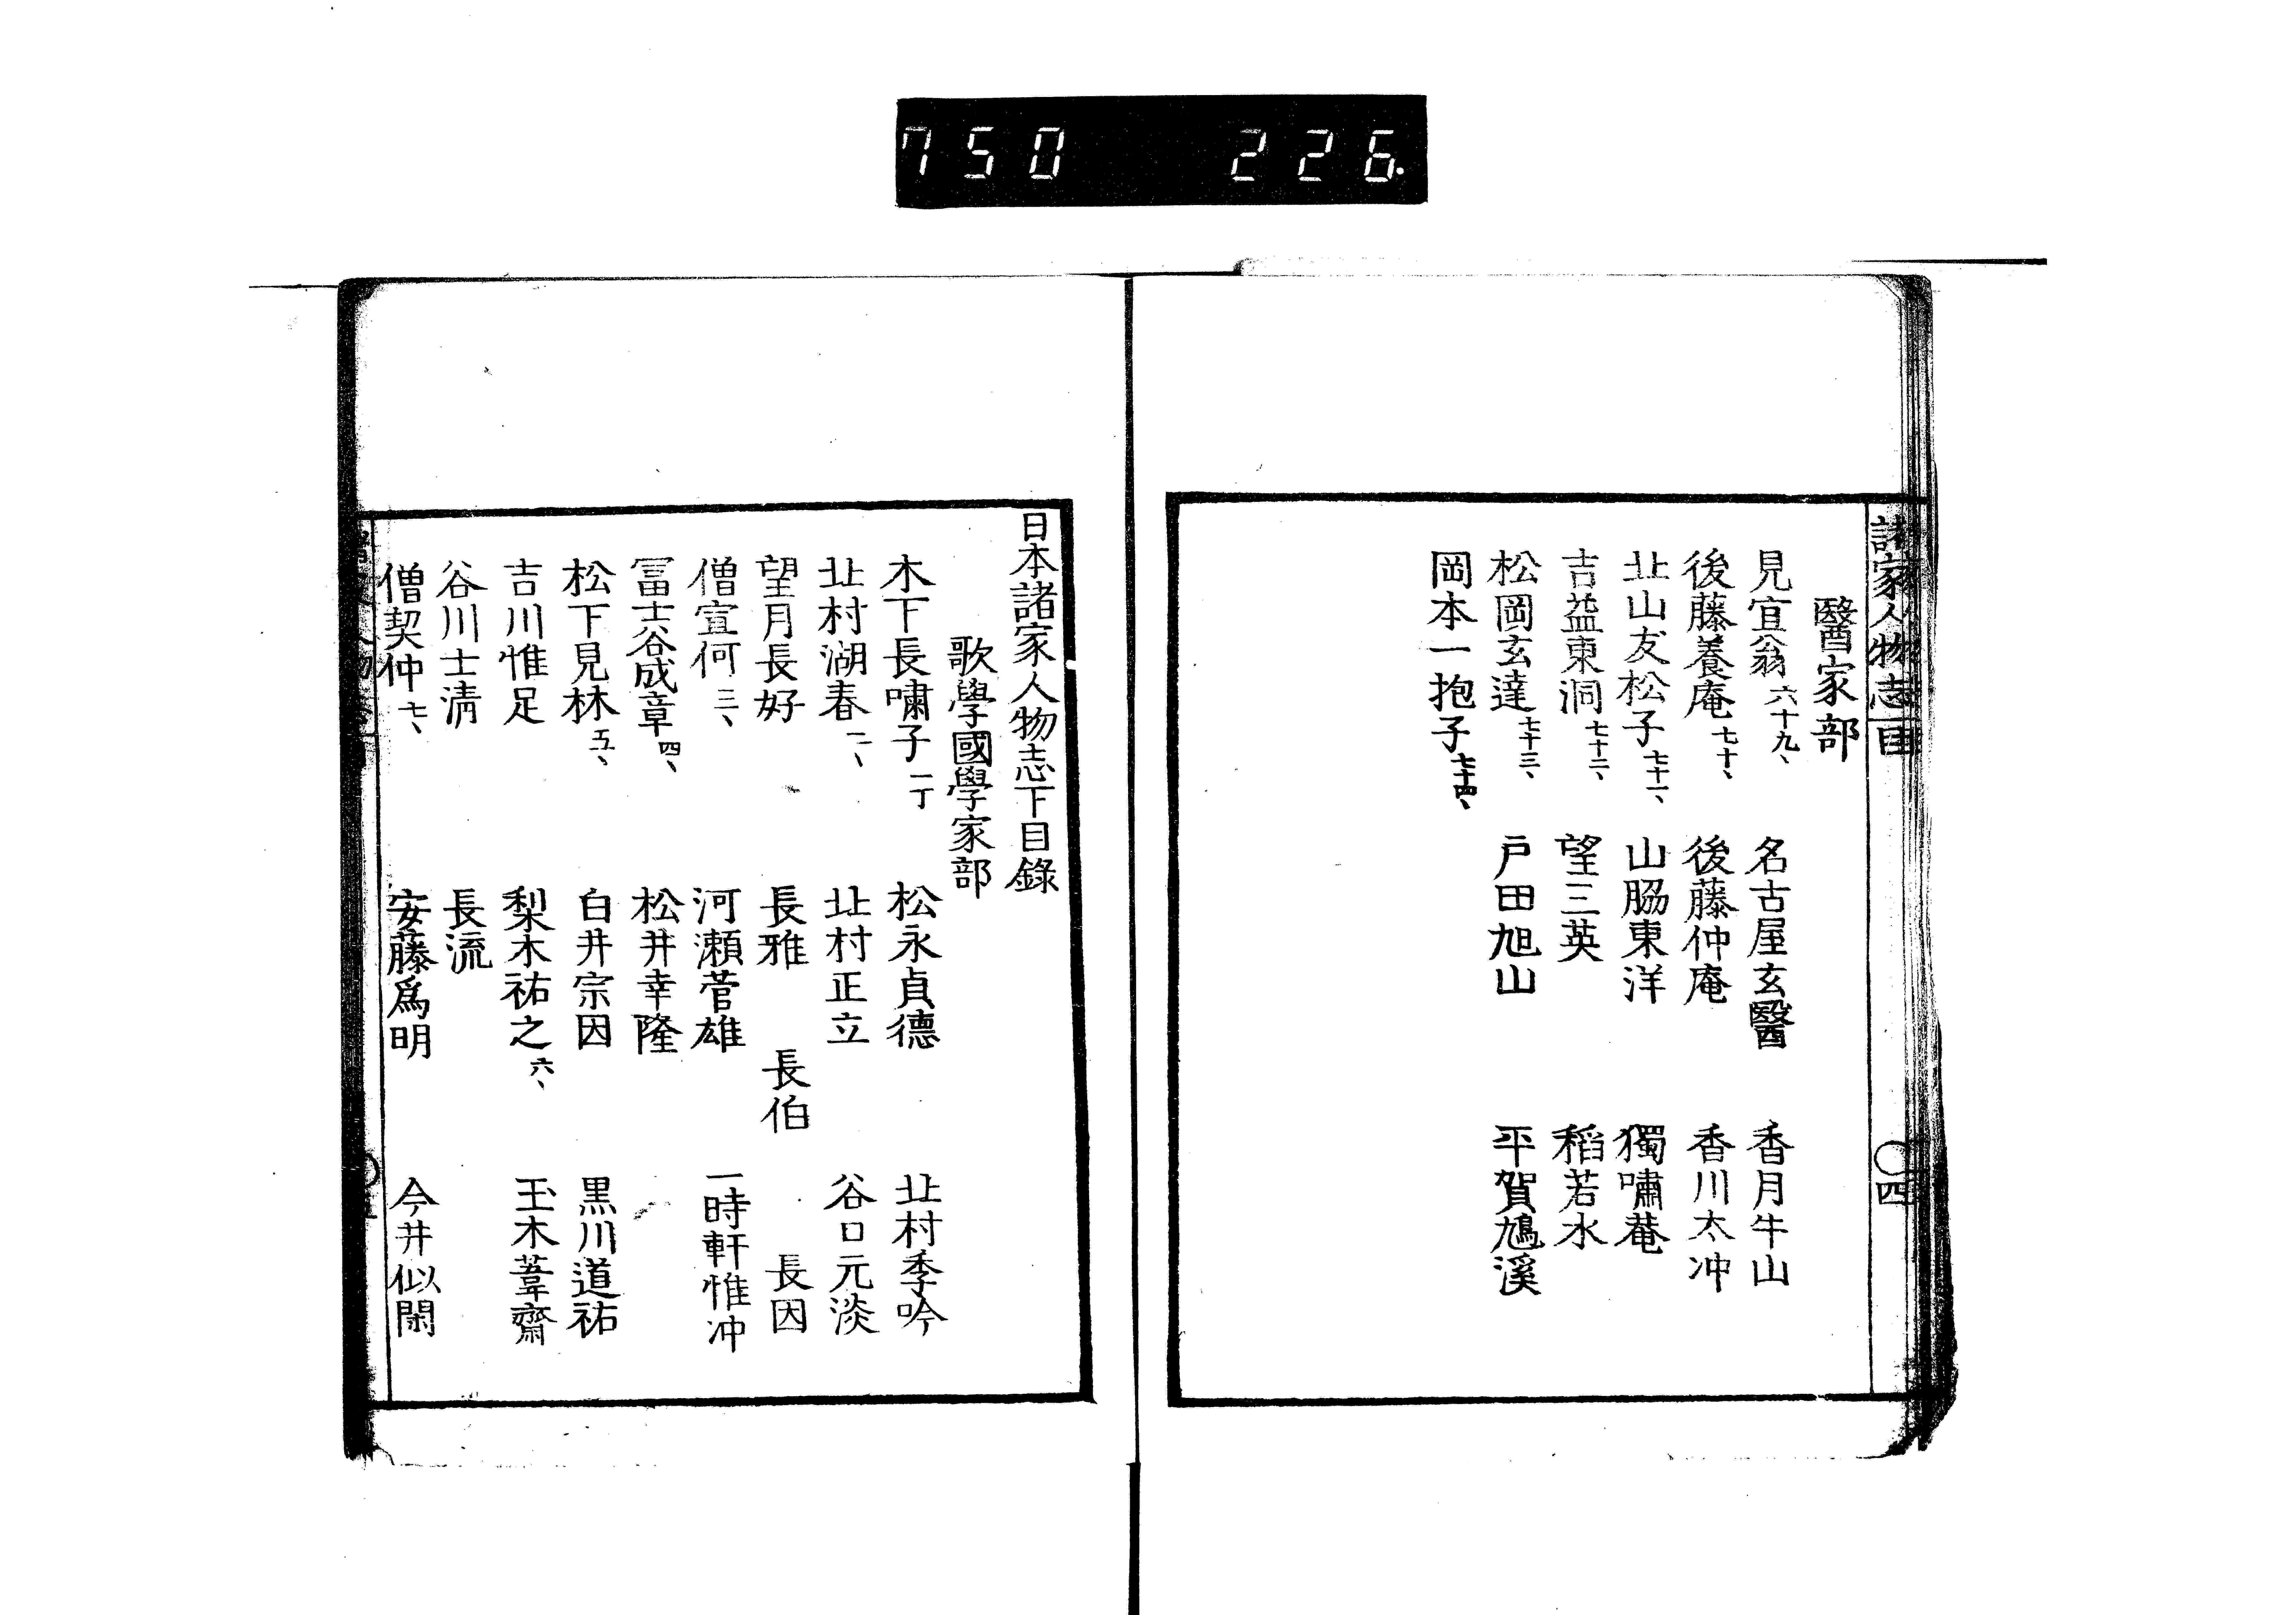 750 226.
諸家人物志目 〇四
醫家部
見宜翁六十九、 名古屋玄醫 香月牛山
後藤養庵七十、 後藤仲庵 香川太冲
北山友松子七十一、 山脇東洋 獨嘯菴
吉益東洞七十二、 望三英 稻若水
松岡玄達七十三、 戸田旭山 平賀鳩溪
岡本一抱子七十四、
日本諸家人物志下目錄
歌學國學家部
木下長嘯子一丁 松永貞德 北村季吟
北村湖春二、 北村正立 谷口元淡
望月長好 長雅 長伯 長因
僧宣何三、 河瀬菅雄 一時軒惟冲
冨士谷成章四、 松井幸隆
松下見林五、 白井宗因 黒川道祐
吉川惟足 梨木祐之六、 玉木葦齋
谷川士淸 長流
僧契仲七、 安藤爲明 今井似閑